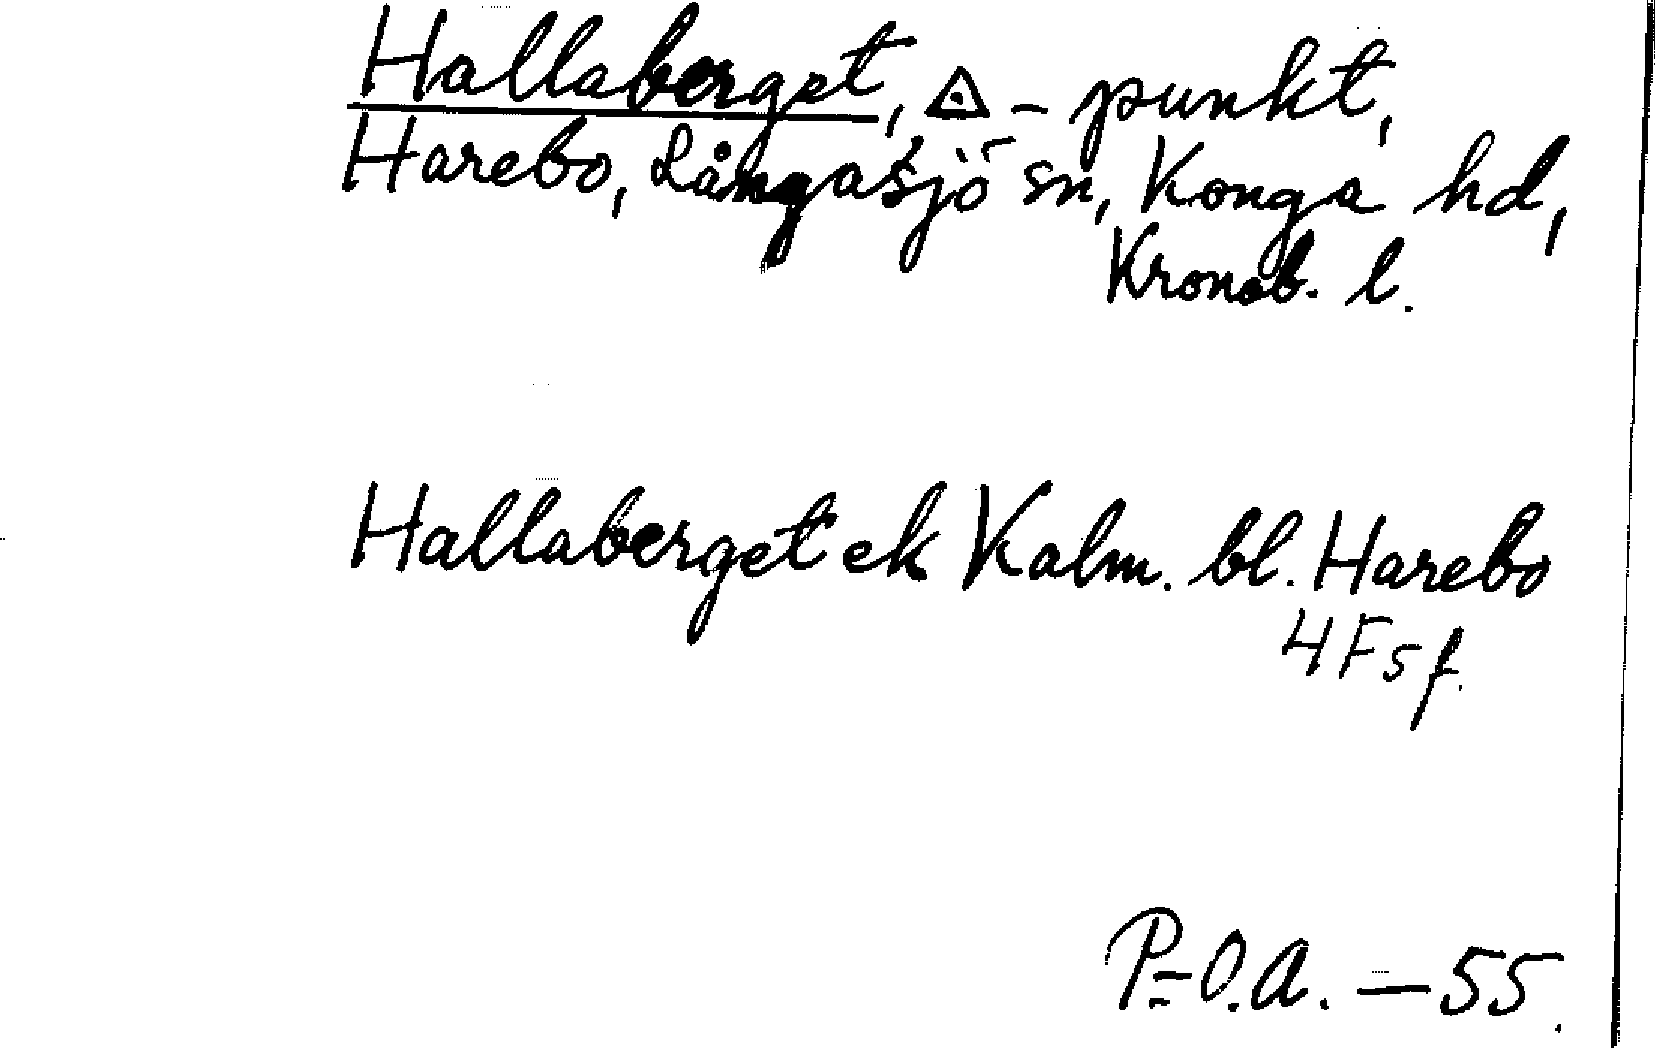 Hallaberget, ◬ - punkt,
Harebo, Långasjö sn, Konga hd,
Kronob. l.
Hallaberget ek Kalm. bl. Harebo
4F5f.
P-O.A. — 55.